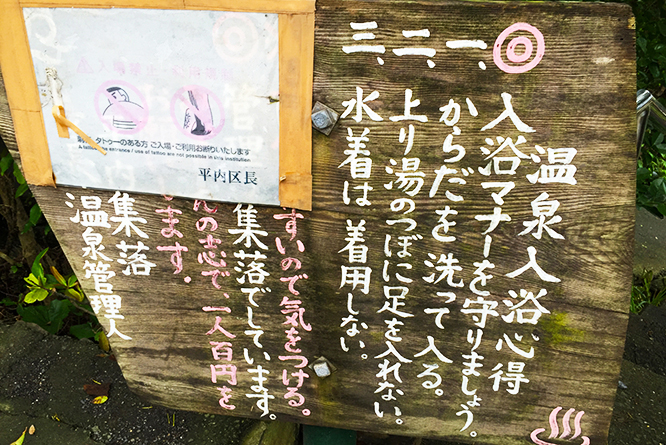 温泉入浴心得
◎入浴マナーを守りましょう。
一、からだを洗って入る。
二、上り湯のつぼに足を入れない。
三、水着は着用しない。
すいので気をつける。
集落でしています。
んの志で、一人百円を
します。
集落
温泉管理人
タトゥーのある方 ご入場・ご利用お断りいたします
A tattoo, the entrance / use of tattoo are not possible in this institution
平内区長